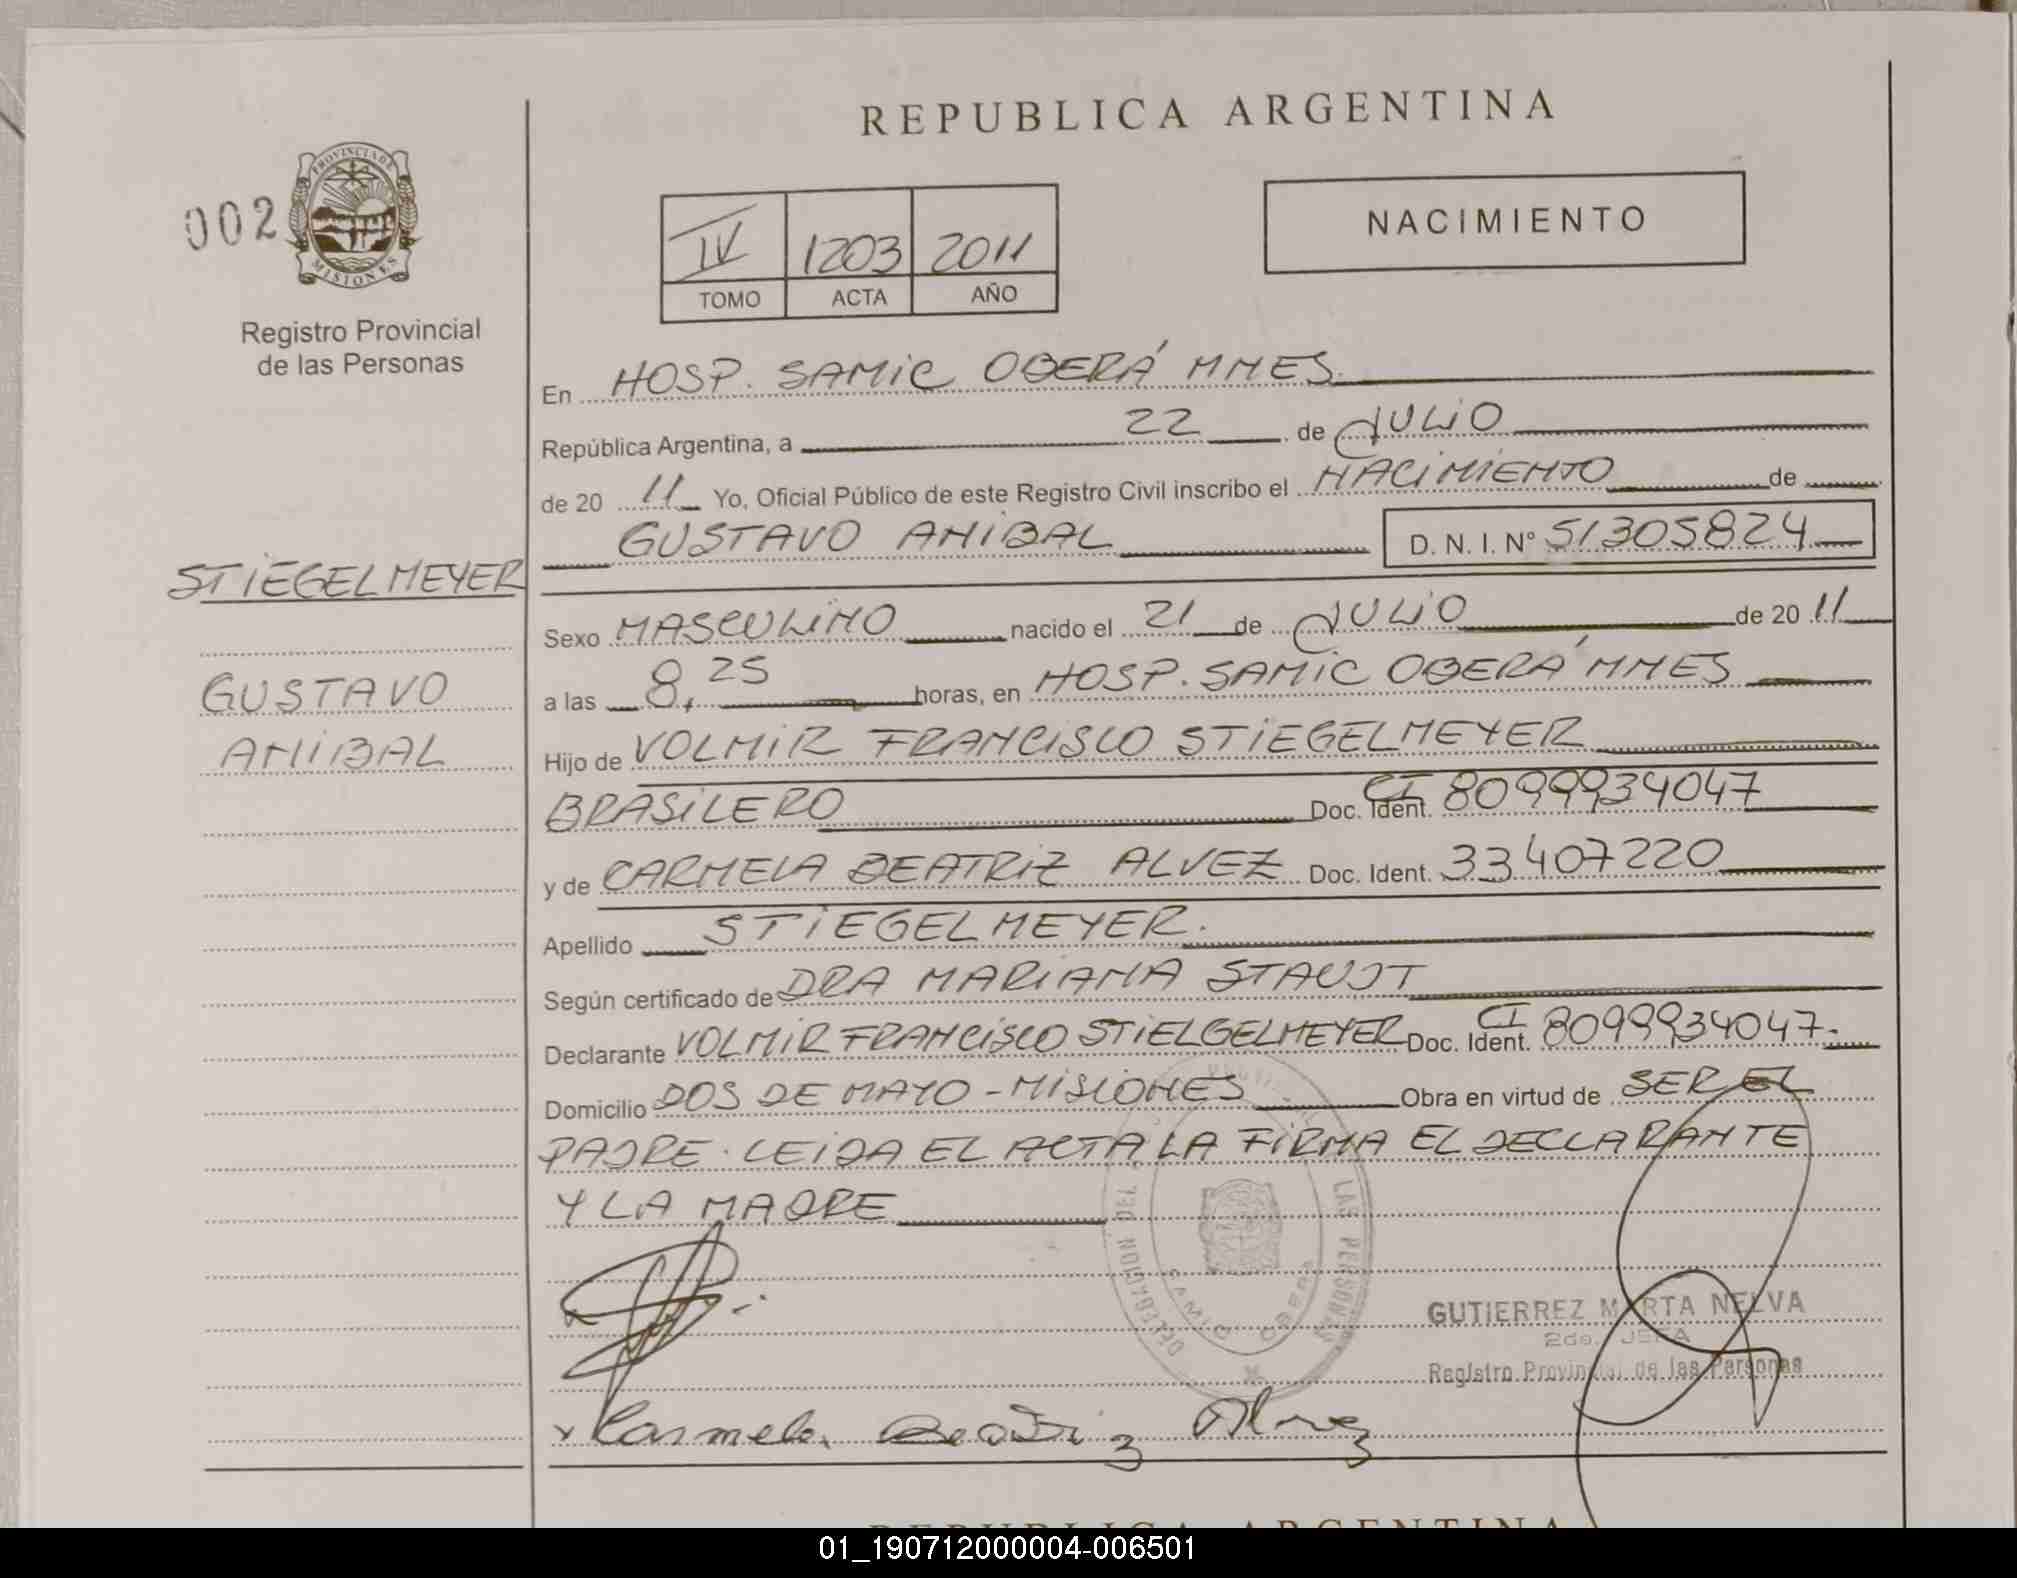 REPUBLICA ARGENTINA
002
PROVINCIA DE
MISIONES
Registro Provincial
de las Personas
NACIMIENTO
IV 1203 2011
TOMO ACTA AÑO
En HOSP. SAMIC OBERÁ MNES
República Argentina, a 22 de JULIO
de 20 11 Yo, Oficial Público de este Registro Civil inscribo el NACIMIENTO de
GUSTAVO ANIBAL D. N. I. Nº 51305824
STIEGELMEYER
GUSTAVO
ANIBAL
Sexo MASCULINO nacido el 21 de JULIO de 20 11
a las 8,25 horas, en HOSP. SAMIC OBERÁ MNES
Hijo de VOLMIR FRANCISCO STIEGELMEYER
BRASILERO Doc. Ident. CI 8099934047
y de CARMELA BEATRIZ ALVEZ Doc. Ident. 33407220
Apellido STIEGELMEYER.
Según certificado de DRA MARIANA
Declarante VOLMIR FRANCISCO STIELGELMEYER Doc. Ident. CI 8099934047.
Domicilio DOS DE MAYO - MISIONES Obra en virtud de SER EL
PADRE. LEIDA EL ACTA LA FIRMA EL DECLARANTE
Y LA MADRE
DELEGACION DEL LAS PERSONAS
SAMIC OBERA
GUTIERREZ MARTA NELVA
2da. JEFA
Registro Provincial de las Personas
x Carmela Beatriz Alvez
REPUBLICA ARGENTINA
01_190712000004-006501